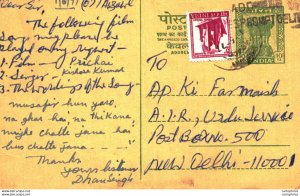 Dear Sir,
The following film
song may please be
played on my request -
1. Film - Prichai
2. Singer - Kishor Kumar
3. The words of the song
musafir hun yaro,
na ghar hai, na thikana
mujhe chalte jana hai
bus chalte jana ---
Thanks
yours listener
Dhan Singh
पोस्ट
POST
केवल
INDIA
Ap Ki Farmaish
A.I.R, Urdu Service
Post Box No. 500
New Delhi - 110001